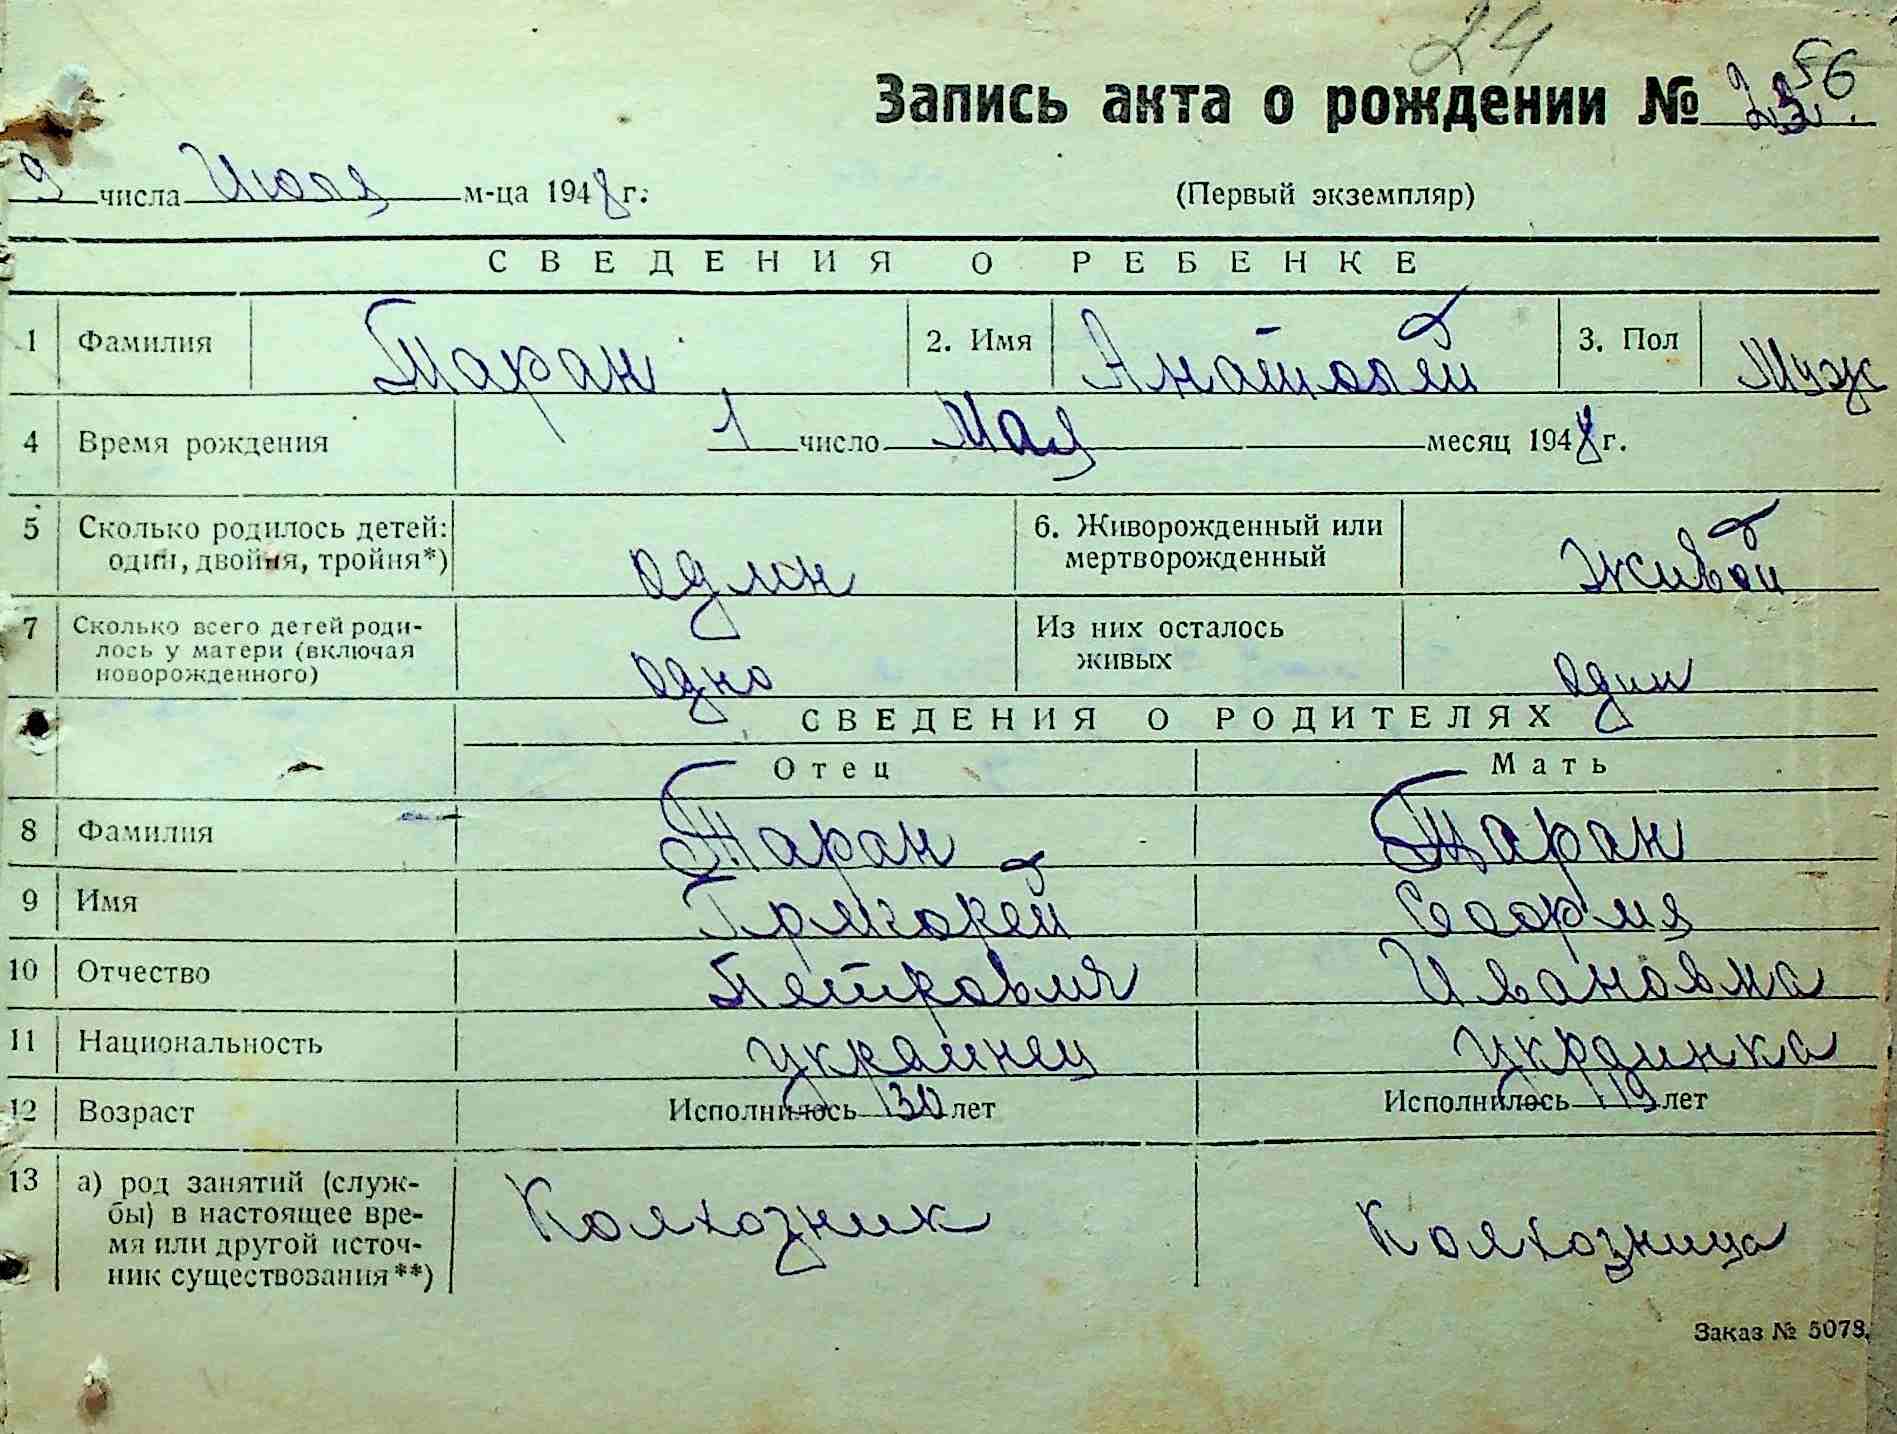 24
Запись акта о рождении № 56
9 числа Июля м-ца 1948 г.
(Первый экземпляр)
СВЕДЕНИЯ О РЕБЕНКЕ
1 Фамилия Таран 2. Имя Анатолий 3. Пол Муж
4 Время рождения 1 число Мая месяц 1948 г.
5 Сколько родилось детей: один, 6. Живорожденный или
один, двойня, тройня*) мертворожденный Живой
7 Сколько всего детей роди- Из них осталось
лось у матери (включая одно живых один
новорожденного)
СВЕДЕНИЯ О РОДИТЕЛЯХ
Отец Мать
8 Фамилия Таран Таран
9 Имя Григорей София
10 Отчество Петрович Ивановна
11 Национальность украинец украинка
12 Возраст Исполнилось 30 лет Исполнилось 19 лет
13 а) род занятий (служ-
бы) в настоящее вре- Колхозник Колхозница
мя или другой источ-
ник существования**)
Заказ № 5078.